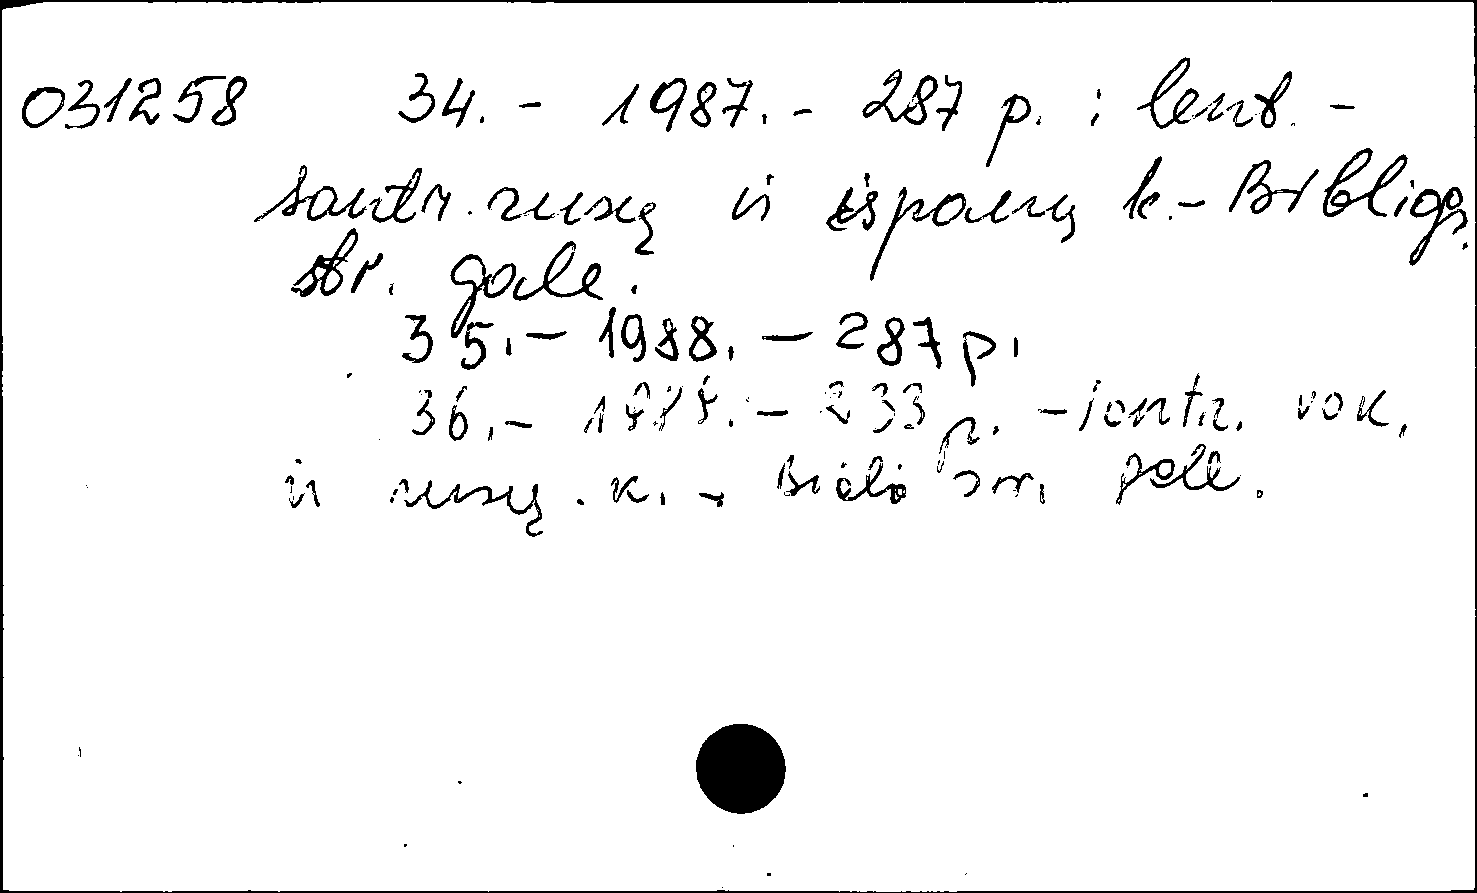 031258 34. - 1987. - 287 p. : lent. -
santr. rusų ir ispanų k. - Bibliogr.
str. gale.
35. - 1988. - 287 p.
36. - 1988. - 233 p. - santr. vok.
ir rusų. k. - Bibl. str. gale.